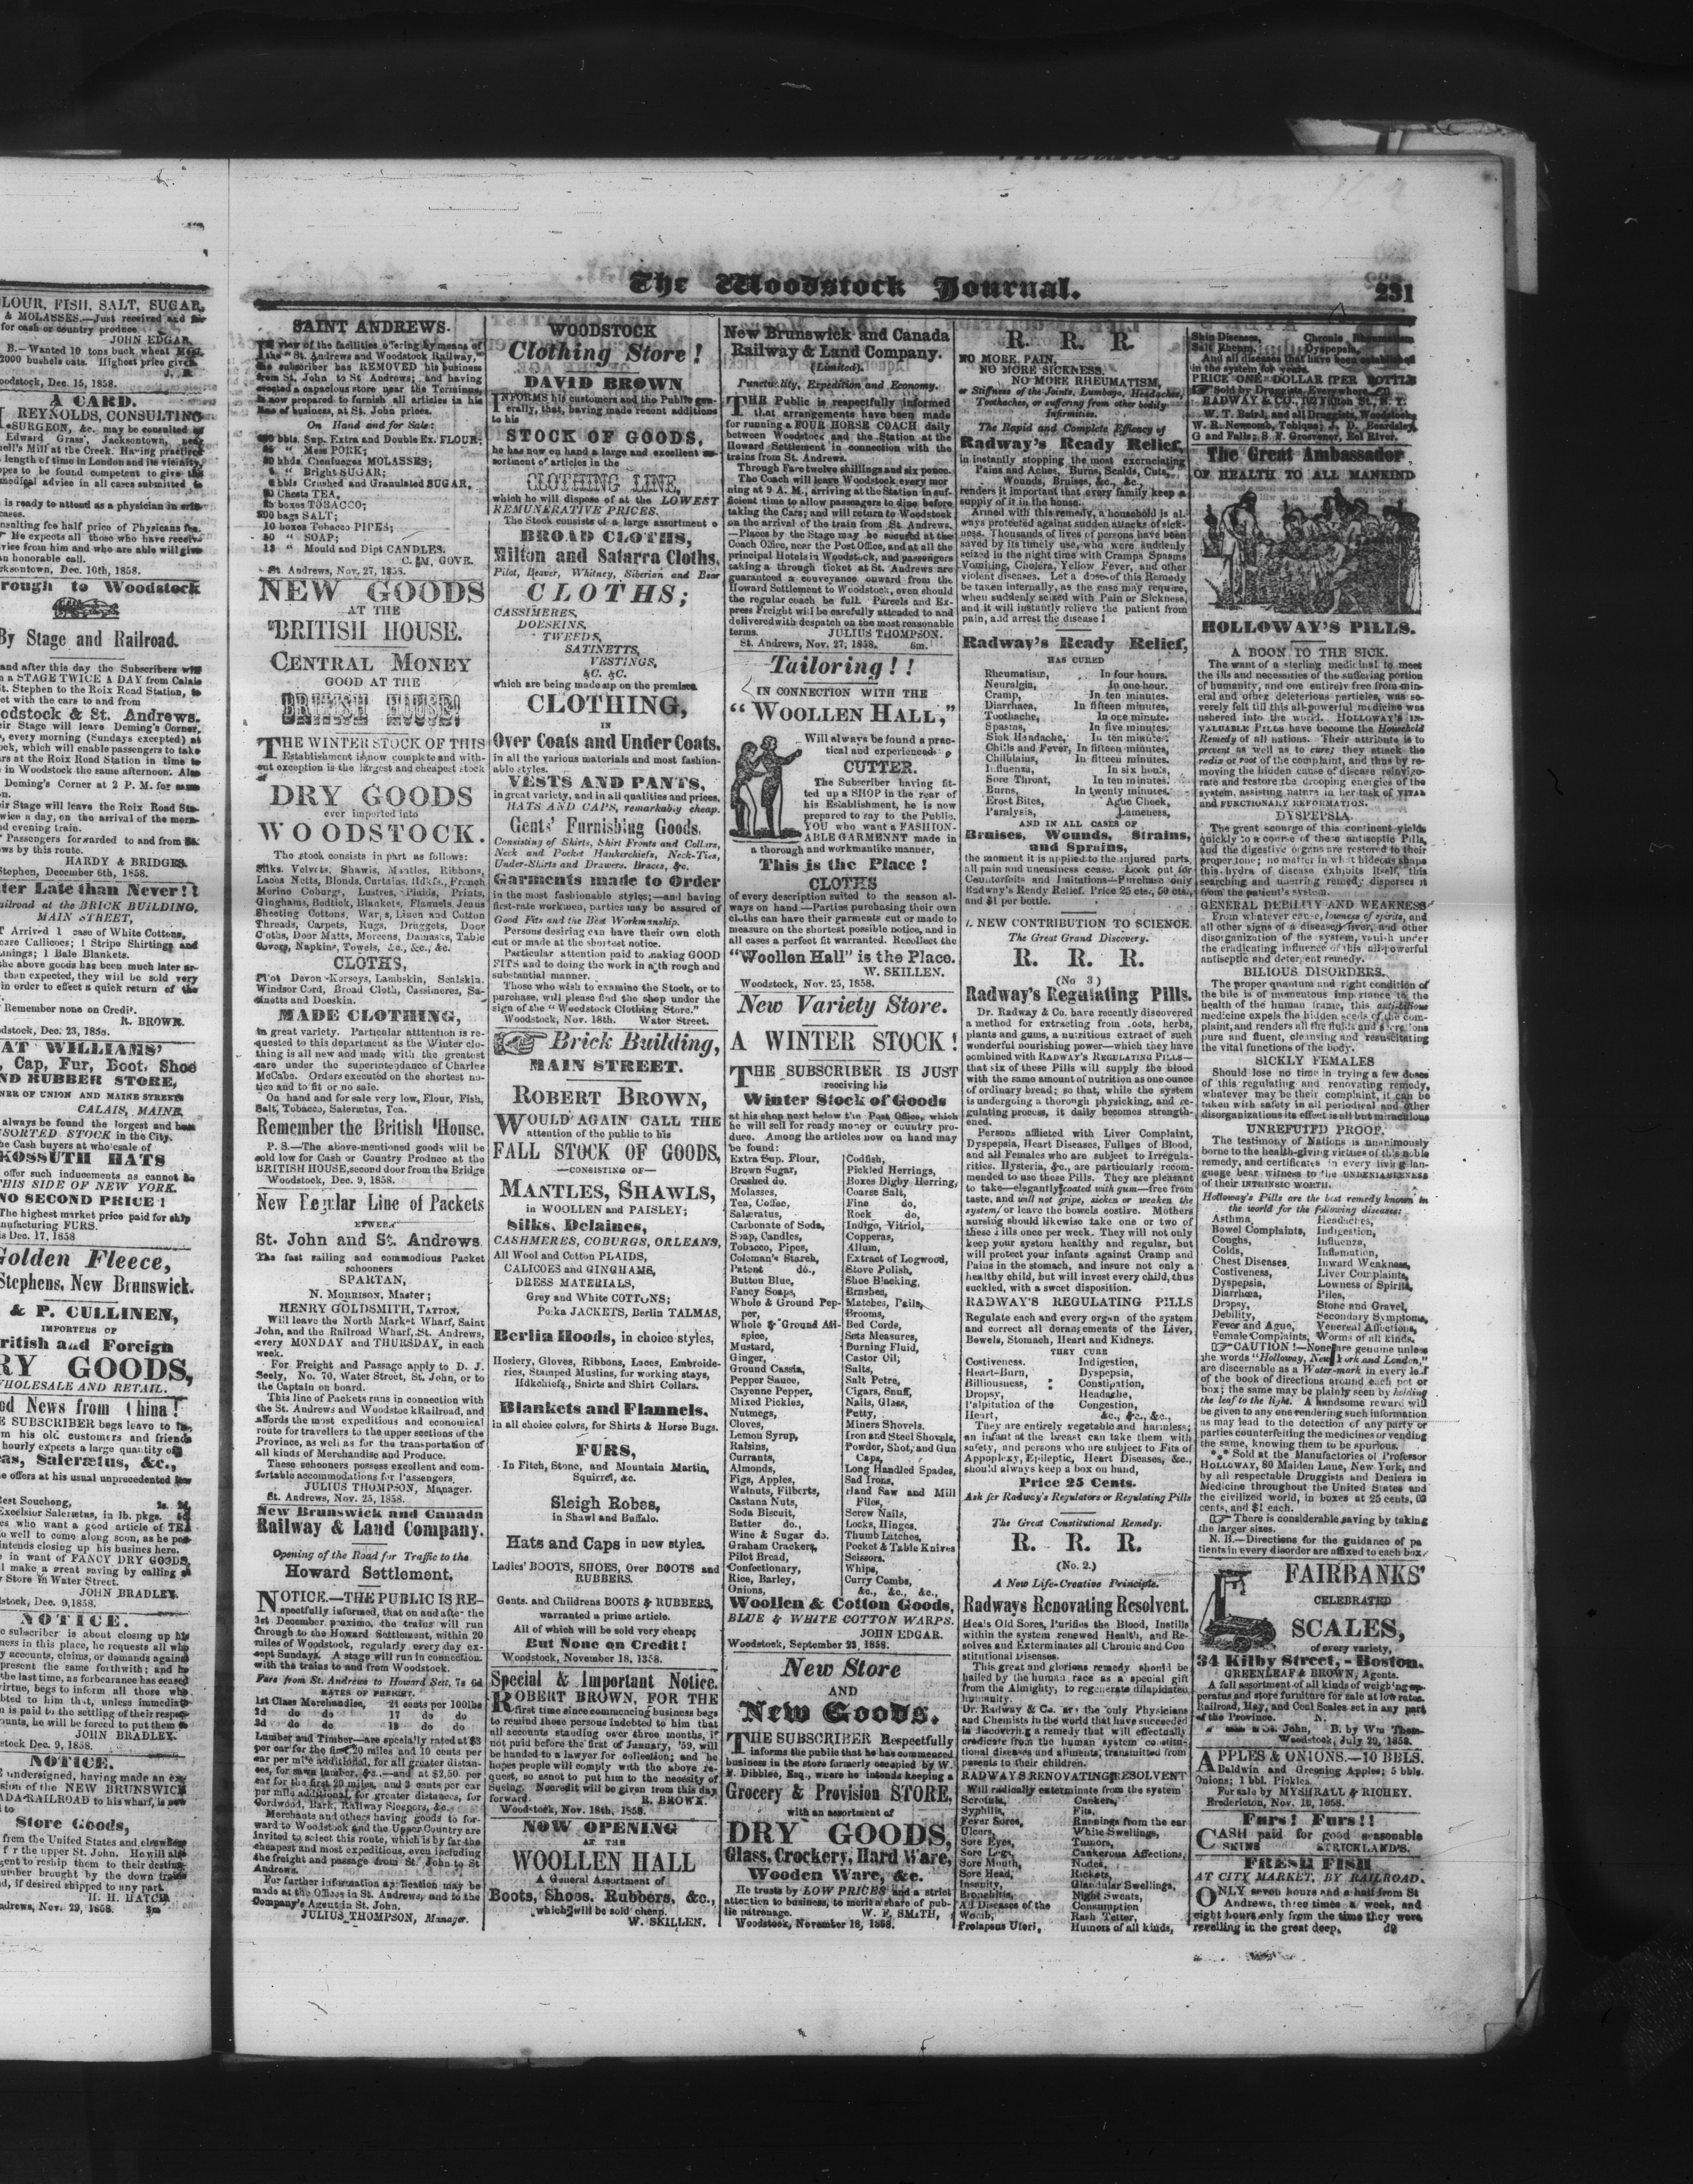 The Woodstock Journal.
231
SAINT ANDREWS.
view of the facilities offering by means of
the "St. Andrews and Woodstock Railway,"
the subscriber has REMOVED his business
from St. John to St Andrews; and having
erected a capacious store near the Terminus,
is now prepared to furnish all articles in his
line of business, at St. John prices.
On Hand and for Sale:
bbls. Sup. Extra and Double Ex. FLOUR;
" Mess PORK;
hhds Cienfuegos MOLASSES;
" Bright SUGAR;
bbls Crushed and Granulated SUGAR,
Chests TEA,
boxes TOBACCO;
200 bags SALT;
10 boxes Tobacco PIPES;
50 " SOAP;
" Mould and Dipt CANDLES.
GOVE.
St. Andrews, Nov. 27, 1858.
NEW GOODS
AT THE
BRITISH HOUSE.
CENTRAL MONEY
GOOD AT THE
BRITISH HOUSE!
THE WINTER STOCK OF THIS
Establishment is now complete and with-
out exception is the largest and cheapest stock
of
DRY GOODS
ever imported into
WOODSTOCK.
The stock consists in part as follows:
Silks. Velvets, Shawls, Mantles, Ribbons,
Laces Netts, Blonds, Curtains, Hdkfs., French
Merino Coburgs, Lustres, Plaids, Prints,
Ginghams, Bedtick, Blankets, Flannels, Jeans
Sheeting Cottons, Warps, Linen and Cotton
Threads, Carpets, Rugs, Druggets, Door
Cloths, Door Matts, Moreens, Damasks, Table
Covers, Napkins, Towels, &c., &c., &c.
CLOTHS,
Pilot Devon Kerseys, Lambskin, Sealskin.
Windsor Cord, Broad Cloth, Cassimeres, Sa-
tinetts and Doeskin.
MADE CLOTHING,
in great variety. Particular atttention is re-
quested to this department as the Winter clo-
thing is all new and made with the greatest
care under the superintendance of Charles
McCabe. Orders executed on the shortest no-
tice and to fit or no sale.
On hand and for sale very low, Flour, Fish,
Salt, Tobacco, Saleratus, Tea.
Remember the British House.
P. S.—The above-mentioned goods will be
sold low for Cash or Country Produce at the
BRITISH HOUSE, second door from the Bridge
Woodstock, Dec. 9, 1858.
New Regular Line of Packets
St. John and St. Andrews
The fast sailing and commodious Packet
schooners
SPARTAN,
N. MORRISON, Master;
HENRY GOLDSMITH, TATTON,
Will leave the North Market Wharf, Saint
John, and the Railroad Wharf, St. Andrews,
every MONDAY and THURSDAY, in each
week.
For Freight and Passage apply to D. J.
Seely, No. 70, Water Street, St. John, or to
the Captain on board.
This line of Packets runs in connection with
the St. Andrews and Woodstoc kRailroad, and
affords the most expeditious and economical
route for travellers to the upper sections of the
Province, as well as for the transportation of
all kinds of Merchandise and Produce.
These schooners possess excellent and com-
fortable accommodations for Passengers.
JULIUS THOMPSON, Manager.
St. Andrews, Nov. 25, 1858.
New Brunswick and Canada
Railway & Land Company.
Opening of the Road for Traffic to the
Howard Settlement.
NOTICE.—THE PUBLIC IS RE-
spectfully informed, that on and after the
1st December proximo, the trains will run
through to the Howard Settlement, within 20
miles of Woodstock, regularly every day ex-
cept Sundays. A stage will run in connection
with the trains to and from Woodstock.
Fare from St. Andrews to Howard Sett, 7s 6d
RATES OF FREIGHT.
1st Class Merchandise, 21 cents per 100lbs
2d do do 17 do do
3d do do 13 do do
Lumber and Timber—are specially rated at $3
per car for the first 20 miles and 10 cents per
car per mile additional, for all greater distan-
ces, for sawn lumber, &c.—and at $2,50. per
car for the first 20 miles, and 3 cents per car
per mile additional, for greater distances, for
Cordwood, Bark, Railway Sleepers, &c.
Merchants and others having goods to for-
ward to Woodstock and the Upper Country are
invited to select this route, which is by far the
cheapest and most expeditious, even including
the freight and passage from St. John to St
Andrews.
For further information application may be
made at the Offices in St. Andrews, and to the
Company's Agent in St. John.
JULIUS THOMPSON, Manager.
WOODSTOCK
Clothing Store!
DAVID BROWN
INFORMS his customers and the Public gen-
erally, that, having made recent additions
to his
STOCK OF GOODS,
he has now on hand a large and excellent as-
sortment of articles in the
CLOTHING LINE,
which he will dispose of at the LOWEST
REMUNERATIVE PRICES.
The Stock consists of a large assortment o
BROAD CLOTHS,
Milton and Satarra Cloths,
Pilot, Beaver, Whitney, Siberian and Bear
CLOTHS;
CASSIMERES,
DOESKINS,
TWEEDS,
SATINETTS,
VESTINGS,
&C. &C.
which are being made up on the premises
CLOTHING,
IN
Over Coats and Under Coats.
in all the various materials and most fashion-
able styles.
VESTS AND PANTS,
in great variety, and in all qualities and prices.
HATS AND CAPS, remarkably cheap.
Gents' Furnishing Goods.
Consisting of Shirts, Shirt Fronts and Collars,
Neck and Pocket Hankerchiefs, Neck-Ties,
Under-Shirts and Drawers, Braces, &c.
Garments made to Order
in the most fashionable styles;—and having
first-rate workmen, parties may be assured of
Good Fits and the Best Workmanship.
Persons desiring can have their own cloth
cut or made at the shortest notice.
Particular attention paid to making GOOD
FITS and to doing the work in a th rough and
substantial manner.
Those who wish to examine the Stock, or to
purchase, will please find the shop under the
sign of the "Woodstock Clothing Store."
Woodstock, Nov. 18th. Water Street.
Brick Building,
MAIN STREET.
ROBERT BROWN,
WOULD AGAIN CALL THE
attention of the public to his
FALL STOCK OF GOODS,
—CONSISTING OF—
MANTLES, SHAWLS,
in WOOLLEN and PAISLEY;
Silks, Delaines,
CASHMERES, COBURGS, ORLEANS,
All Wool and Cotton PLAIDS,
CALICOES and GINGHAMS,
DRESS MATERIALS,
Grey and White COTTONS;
Polka JACKETS, Berlin TALMAS,
Berlin Hoods, in choice styles,
Hosiery, Gloves, Ribbons, Laces, Embroide-
ries, Stamped Muslins, for working stays,
Hdkchiefs, Shirts and Shirt Collars.
Blankets and Flannels,
in all choice colors, for Shirts & Horse Bugs.
FURS,
In Fitch, Stone, and Mountain Martin,
Squirrel, &c.
Sleigh Robes,
in Shawl and Buffalo.
Hats and Caps in new styles.
Ladies' BOOTS, SHOES, Over BOOTS and
RUBBERS.
Gents. and Childrens BOOTS & RUBBERS,
warranted a prime article.
All of which will be sold very cheap;
But None on Credit!
Woodstock, November 18, 1858.
Special & Important Notice.
ROBERT BROWN, FOR THE
first time since commencing business begs
to remind those persons indebted to him that
all accounts standing over three months, if
not paid before the first of January, '59, will
be handed to a lawyer for collection; and he
hopes people will comply with the above re-
quest, so asnot to put him to the necesity of
Sueing. No credit will be given from this day
forward. R. BROWN.
Woodstock, Nov. 18th, 1858.
NOW OPENING
AT THE
WOOLLEN HALL
A General Assortment of
Boots, Shoes, Rubbers, &c.,
which will be sold cheap.
W. SKILLEN.
New Brunswick and Canada
Railway & Land Company.
(Limited).
Punctuality, Expedition and Economy.
THE Public is respectfully informed
that arrangements have been made
for running a FOUR HORSE COACH daily
between Woodstock and the Station at the
Howard Settlement in connection with the
trains from St. Andrews.
Through Fare twelve shillings and six pence.
The Coach will leave Woodstock every mor
ning at 9 A. M., arriving at the Station in suf-
ficient time to allow passengers to dine before
taking the Cars; and will return to Woodstock
on the arrival of the train from St. Andrews.
—Places by the Stage may be secured at the
Coach Office, near the Post Office, and at all the
principal Hotels in Woodstock, and passengers
taking a through ticket at St. Andrews are
guaranteed a conveyance onward from the
Howard Settlement to Woodstock, even should
the regular coach be full. Parcels and Ex-
press Freight will be carefully attended to and
delivered with despatch on the most reasonable
terms. JULIUS THOMPSON.
St. Andrews, Nov. 27, 1858. 6m.
Tailoring!!
IN CONNECTION WITH THE
"WOOLLEN HALL,"
Will always be found a prac-
tical and experienced
CUTTER.
The Subscriber having fit-
ted up a SHOP in the rear of
his Establishment, he is now
prepared to say to the Public.
YOU who want a FASHION-
ABLE GARMENNT made in
a thorough and workmanlike manner,
This is the Place!
CLOTHS
of every description suited to the season al-
ways on hand.—Parties purchasing their own
cloths can have their garments cut or made to
measure on the shortest possible notice, and in
all cases a perfect fit warranted. Recollect the
"Woollen Hall" is the Place.
W. SKILLEN.
Woodstock, Nov. 25, 1858.
New Variety Store.
A WINTER STOCK!
THE SUBSCRIBER IS JUST
receiving his
Winter Stock of Goods
at his shop next below the Post Office, which
he will sell for ready money or country pro-
duce. Among the articles now on hand may
be found:
Extra Sup. Flour,
Brown Sugar,
Crushed do.
Molasses,
Tea, Coffee,
Salæratus,
Carbonate of Soda,
Soap, Candles,
Tobacco, Pipes,
Coleman's Starch,
Patent do.,
Button Blue,
Fancy Soaps,
Whole & Ground Pep-
per,
Whole & Ground All-
spice,
Mustard,
Ginger,
Ground Cassia,
Pepper Sauce,
Cayenne Pepper,
Mixed Pickles,
Nutmegs,
Cloves,
Lemon Syrup,
Raisins,
Currants,
Almonds,
Figs, Apples,
Walnuts, Filberts,
Castana Nuts,
Soda Biscuit,
Butter do.,
Wine & Sugar do.
Graham Crackers,
Pilot Bread,
Confectionary,
Rice, Barley,
Onions,
Codfish,
Pickled Herrings,
Boxes Digby Herring,
Coarse Salt,
Fine do,
Rock do,
Indigo, Vitriol,
Copperas,
Allum,
Extract of Logwood,
Stove Polish,
Shoe Blacking,
Brushes,
Matches, Pails,
Brooms,
Bed Cords,
Sets Measures,
Burning Fluid,
Castor Oil;
Salts,
Salt Petre,
Cigars, Snuff,
Nails, Glass,
Putty,
Miners Shovels,
Iron and Steel Shovels,
Powder, Shot, and Gun
Caps,
Long Handled Spades,
Sad Irons,
Hand Saw and Mill
Files,
Screw Nails,
Locks, Hinges,
Thumb Latches,
Pocket & Table Knives
Scissors.
Whips,
Curry Combs,
&c., &c., &c.,
Woollen & Cotton Goods,
BLUE & WHITE COTTON WARPS.
JOHN EDGAR.
Woodstock, September 23, 1858.
New Store
AND
New Goods.
THE SUBSCRIBER Respectfully
informs the public that he has commenced
business in the store formerly occupied by W.
F. Dibblee, Esq., where he intends keeping a
Grocery & Provision STORE,
with an assortment of
DRY GOODS,
Glass, Crockery, Hard Ware,
Wooden Ware, &c.
He trusts by LOW PRICES and a strict
attention to business, to merit a share of pub-
lic patronage. W. F. SMITH,
Woodstock, November 18, 1858.
R. R. R.
NO MORE PAIN,
NO MORE SICKNESS.
NO MORE RHEUMATISM,
or Stiffness of the Joints, Lumbago, Headaches,
Toothaches, or suffering from other bodily
Infirmities.
The Rapid and Complete Efficacy of
Radway's Ready Relief,
in instantly stopping the most excruciating
Pains and Aches, Burns, Scalds, Cuts,
Wounds, Bruises, &c., &c.,
renders it important that every family keep a
supply of it in the house.
Armed with this remedy, a household is al-
ways protected against sudden attacks of sick-
ness. Thousands of lives of persons have been
saved by its timely use, who were suddenly
seized in the night time with Cramps Spasms
Vomiting, Cholera, Yellow Fever, and other
violent diseases. Let a dose of this Remedy
be taken internally, as the case may require,
when suddenly seized with Pain or Sickness,
and it will instantly relieve the patient from
pain, and arrest the disease!
Radway's Ready Relief,
HAS CURED
Rheumatism, In four hours.
Neuralgia, In one hour.
Cramp, In ten minutes.
Diarrhaea, In fifteen minutes,
Toothache, In one minute.
Spasms, In five minutes.
Sick Headache, In ten minutes.
Chills and Fever, In fifteen minutes,
Chilblains, In fifteen minutes.
Influenza, In six hours,
Sore Throat, In ten minutes.
Burns, In twenty minutes.
Frost Bites, Ague Cheek,
Paralysis, Lameness,
AND IN ALL CASES OF
Bruises, Wounds, Strains,
and Sprains,
the moment it is applied to the injured parts,
all pain and uneasiness cease. Look out for
Counterfeits and Imitations—Purchase only
Radway's Ready Relief. Price 25 cts., 50 cts.,
and $1 per bottle.
NEW CONTRIBUTION TO SCIENCE.
The Great Grand Discovery.
R. R. R.
(No 3)
Radway's Regulating Pills.
Dr. Radway & Co. have recently discovered
a method for extracting from roots, herbs,
plants and gums, a nutritious extract of such
wonderful nourishing power—which they have
combined with RADWAY'S REGULATING PILLS—
that six of these Pills will supply the blood
with the same amount of nutrition as one ounce
of ordinary bread; so that, while the system
is undergoing a thorough physicking, and re-
gulating process, it daily becomes strength-
ened.
Persons afflicted with Liver Complaint,
Dyspepsia, Heart Diseases, Fullnes of Blood,
and all Females who are subject to Irregula-
rities. Hysteria, &c., are particularly recom-
mended to use these Pills. They are pleasant
to take—elegantly coated with gum—free from
taste, and will not gripe, sicken or weaken the
system, or leave the bowels costive. Mothers
nursing should likewise take one or two of
these Pills once per week. They will not only
keep your system healthy and regular, but
will protect your infants against Cramp and
Pains in the stomach, and insure not only a
healthy child, but will invest every child, thus
suckled, with a sweet disposition.
RADWAY'S REGULATING PILLS
Regulate each and every organ of the system
and correct all derangements of the Liver,
Bowels, Stomach, Heart and Kidneys.
THEY CURE
Costiveness. Indigestion,
Heart-Burn, Dyspepsia,
Billiousness, Constipation,
Dropsy, Headache,
Palpitation of the Congestion,
Heart, &c., &c., &c.,
They are entirely vegetable and harmless;
an infant at the breast can take them with
safety, and persons who are subject to Fits of
Appoplexy, Epileptic, Heart Diseases, &c.,
should always keep a box on hand,
Price 25 Cents.
Ask for Radway's Regulators or Regulating Pills
The Great Constitutional Remedy.
R. R. R.
(No. 2.)
A New Life-Creative Principle.
Radways Renovating Resolvent.
Heals Old Sores, Purifies the Blood, Instills
within the system renewed Health, and Re-
solves and Exterminates all Chronic and Con
stitutional Diseases.
This great and glorious remedy should be
hailed by the human race as a special gift
from the Almighty, to regenerate dilapidated
humanity.
Dr. Radway & Co. are the only Physicians
and Chemists in the world that have succeeded
in discovering a remedy that will effectually
eradicate from the human system constitu-
tional diseases and ailments, transmitted from
parents to their children.
RADWAY'S RENOVATING RESOLVENT
Will radically exterminate from the system
Scrofula, Cankers,
Syphilis, Fits,
Fever Sores, Runnings from the ear
Ulcers, White Swellings,
Sore Eyes, Tumors,
Sore Legs, Cankerous Affections,
Sore Mouth, Nodes,
Sore Head, Rickets,
Insanity, Glandular Swellings,
Bronchitis, Night Sweats,
All Diseases of the Consumption
Womb, Rash Tetter,
Prolapsus Uteri, Humors of all kinds,
Skin Diseases, Chronic Rheumatism
Salt Rheum, Dyspepsia,
And all diseases that have been established
in the system for years.
PRICE ONE DOLLAR PER BOTTLE
Sold by Druggists Everywhere.
RADWAY & CO., 162 Fulton St., N. Y.
W. T. Baird, and all Druggists, Woodstock;
W. R. Newcomb, Tobique; J. D. Beardsley,
G and Falls; S. F. Grosvenor, Eel River.
The Great Ambassador
OF HEALTH TO ALL MANKIND
HOLLOWAY'S PILLS.
A BOON TO THE SICK.
The want of a sterling medicinal to meet
the ills and necessities of the suffering portion
of humanity, and one entirely free from min-
eral and other deleterious particles, was se-
verely felt till this all-powerful medicine was
ushered into the world. HOLLOWAY'S IN-
VALUABLE PILLS have become the Household
Remedy of all nations. Their attribute is to
prevent as well as to cure; they attack the
redix or root of the complaint, and thus by re-
moving the hidden cause of disease reinvigo-
rate and restore the drooping energies of the
system, assisting nature in her task of VITAL
and FUNCTIONARY REFORMATION.
DYSPEPSIA.
The great scourge of this continent yields
quickly to a course of these antiseptic Pills,
and the digestive organs are restored to their
proper tone; no matter in what hideous shape
this hydra of disease exhibits itself, this
searching and unerring remedy disperses it
from the patient's system.
GENERAL DEBILITY AND WEAKNESS
From whatever cause, lowness of spirits, and
all other signs of a diseased liver, and other
disorganization of the system, vanish under
the eradicating influence of this all-powerful
antiseptic and detergent remedy.
BILIOUS DISORDERS.
The proper quantum and right condition of
the bile is of momentous importance to the
health of the human frame, this anti-bilious
medicine expels the hidden seeds of the com-
plaint, and renders all the fluids and secretions
pure and fluent, cleansing and resuscitating
the vital functions of the body.
SICKLY FEMALES
Should lose no time in trying a few doses
of this regulating and renovating remedy,
whatever may be their complaint, it can be
taken with safety in all periodical and other
disorganizations its effect is all but miraculous
UNREFUTED PROOF.
The testimony of Nations is unanimously
borne to the health-giving virtues of this noble
remedy, and certificates in every living lan-
guage bear witness to the UNDENIABLENESS
of their INTRINSIC WORTH.
Holloway's Pills are the best remedy known in
the world for the following diseases:
Asthma, Headaches,
Bowel Complaints, Indigestion,
Coughs, Influenza,
Colds, Inflamation,
Chest Diseases, Inward Weakness,
Costiveness, Liver Complaints,
Dyspepsia, Lowness of Spirits,
Diarrhœa, Piles,
Dropsy, Stone and Gravel,
Debility, Secondary Symptoms,
Fever and Ague, Venereal Affections,
Female Complaints, Worms of all kinds.
CAUTION!—None are genuine unless
the words "Holloway, New York and London,"
are discernable as a Water-mark in every leaf
of the book of directions around each pot or
box; the same may be plainly seen by holding
the leaf to the light. A handsome reward will
be given to any one rendering such information
as may lead to the detection of any party or
parties counterfeiting the medicines or vending
the same, knowing them to be spurious.
*** Sold at the Manufactories of Professor
HOLLOWAY, 80 Maiden Lane, New York, and
by all respectable Druggists and Dealers in
Medicine throughout the United States and
the civilized world, in boxes at 25 cents, 63
cents, and $1 each.
There is considerable saving by taking
the larger sizes.
N. B.—Directions for the guidance of pa
tients in every disorder are affixed to each box.
FAIRBANKS'
CELEBRATED
SCALES,
of every variety,
34 Kilby Street, - Boston.
GREENLEAF & BROWN, Agents.
A full assortment of all kinds of weighing ap-
peratus and store furniture for sale at low rates.
Railroad, Hay, and Coal Scales set in any part
of the Province.
St. John, N. B. by Wm Thom-
Woodstock, July 29, 1858.
APPLES & ONIONS.—10 BBLS.
Baldwin and Greening Apples; 5 bbls.
Onions; 1 bbl. Pickles.
For sale by MYSHRALL & RICHEY.
Fredericton, Nov. 16, 1858.
Furs! Furs!!
CASH paid for good seasonable
SKINS STRICKLAND'S.
FRESH FISH
AT CITY MARKET, BY RAILROAD.
ONLY seven hours and a half from St
Andrews, three times a week, and
eight hours only from the time they were
revelling in the great deep. d9
LOUR, FISH, SALT, SUGAR,
& MOLASSES.—Just received and for
for cash or country produce
JOHN EDGAR.
B.—Wanted 10 tons buck wheat Meal.
2000 bushels oats. Highest price given.
oodstock, Dec. 15, 1858.
A CARD.
REYNOLDS, CONSULTING
SURGEON, &c. may be consulted at
Edward Grass', Jacksontown, near
ell's Mill at the Creek. Having practised
length of time in London and its vicinity,
opes to be found competent to give the
medical advice in all cases submitted to
is ready to attend as a physician in
cases.
nsulting fee half price of Physicans fee.
He expects all those who have receiv-
vice from him and who are able will give
n honorable call.
rksontown, Dec. 10th, 1858.
rough to Woodstock
By Stage and Railroad.
and after this day the Subscribers will
n a STAGE TWICE A DAY from Calais
St. Stephen to the Roix Road Station, to
ect with the cars to and from
odstock & St. Andrews.
eir Stage will leave Deming's Corner,
, every morning (Sundays excepted) at
ock, which will enable passengers to take
rs at the Roix Road Station in time to
e in Woodstock the same afternoon. Also
Deming's Corner at 2 P. M. for same
on.
eir Stage will leave the Roix Road Sta-
wice a day, on the arrival of the morn-
nd evening train.
Passengers forwarded to and from St.
ws by this route.
HARDY & BRIDGES.
Stephen, December 6th, 1858.
ter Late than Never!!
ailroad at the BRICK BUILDING,
MAIN STREET,
T Arrived 1 case of White Cottons,
case Callicoes; 1 Stripe Shirtings and
nings; 1 Bale Blankets.
the above goods has been much later ar-
than expected, they will be sold very
in order to effect a quick return of the
Remember none on Credit.
R. BROWN.
dstock, Dec. 23, 1858.
AT WILLIAMS'
, Cap, Fur, Boot, Shoe
ND RUBBER STORE,
NER OF UNION AND MAINE STREETS
CALAIS, MAINE.
always be found the largest and best
SSORTED STOCK in the City.
he Cash buyers at who'esale or retail
KOSSUTH HATS
offer such inducements as cannot be
THIS SIDE OF NEW YORK.
NO SECOND PRICE!
The highest market price paid for ship
nufacturing FURS.
s Dec. 17, 1858
Golden Fleece,
Stephens, New Brunswick.
& P. CULLINEN,
IMPORTERS OF
ritish and Foreign
RY GOODS,
WHOLESALE AND RETAIL.
od News from China!
E SUBSCRIBER begs leave to in-
m his old customers and friends
hourly expects a large quantity of
eas, Saleræus, &c.,
e offers at his usual unprecedented low
Best Souchong,
Excelsior Saleræus, in lb. pkgs.
es who want a good article of TEA
o well to come along soon, as he pos-
intends closing up his busines here.
e in want of FANCY DRY GOODS,
l make a great saving by calling at
Store in Water Street.
JOHN BRADLEY.
stock, Dec. 9, 1858.
NOTICE.
e subscriber is about closing up his
ness in this place, he requests all who
y accounts, claims, or demands against
present the same forthwith; and
the last time, as forbearance has ceased
virtue, begs to inform all those who
bted to him that, unless immediate
n is paid to the settling of their respec-
ounts, he will be forced to put them
JOHN BRADLEY.
stock Dec. 9, 1858.
NOTICE.
undersigned, having made an ex-
sion of the NEW BRUNSWICK
ADA RAILROAD to his wharf, is now
to
Store Goods,
from the United States and elsewhere
f r the upper St. John. He will also
gent to reship them to their destina-
umber brought by the down trains
d, if desired shipped to any part.
H. H. HATCH
ndrews, Nov. 29, 1858. 3m